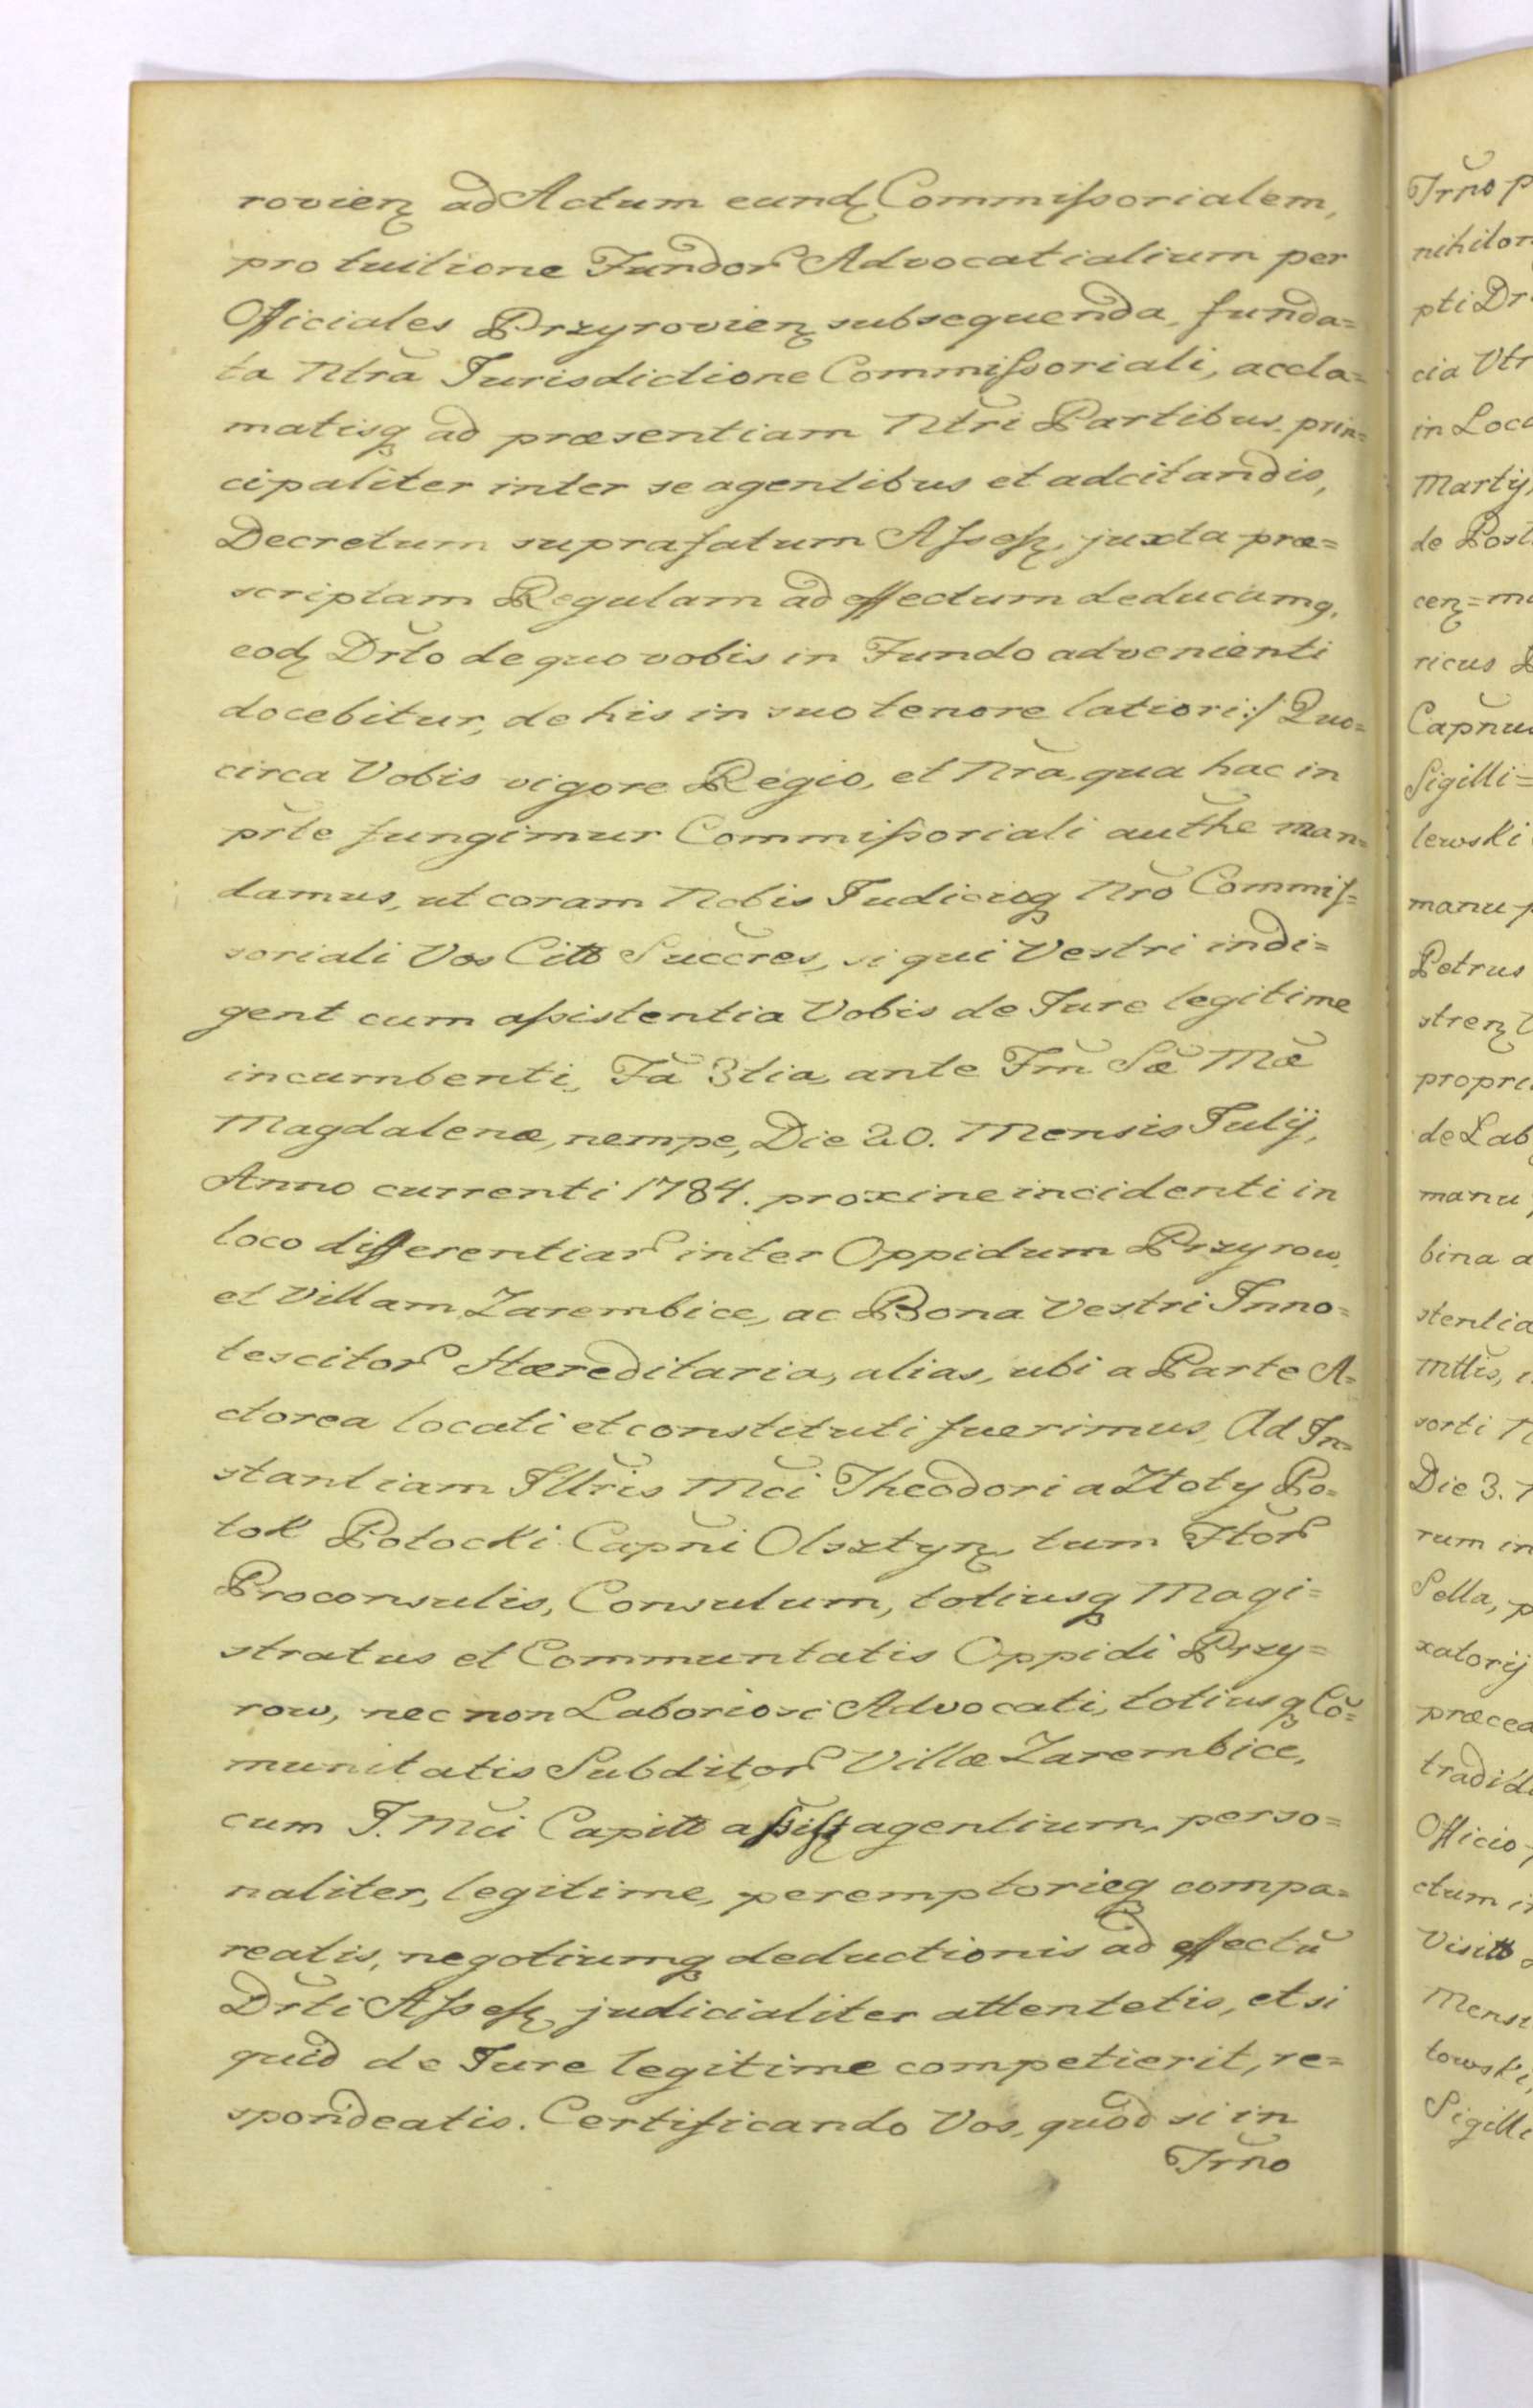 rovienȝ ad Actum eundȝ Commiſsorialem,
pro tuitione Fundoꝝ Advocatialium per
Officiales Przyrovienȝ subsequenda, funda=
ta Ntrã Jurisdictione Commiſsoriali, accla=
matisqȝ ad præsentiam Ntri Partibus prin=
cipaliter inter se agentibus et adcitandis,
Decretum suprafatum Aſseſsȝ juxta præ=
scriptam Regulam ad effectum deducamqȝ
eodȝ Drto de quo vobis in Fundo advenienti
docebitur, de his in suo tenore latiori:/ Quo=
circa Vobis vigore Regio, et Nra, qua hac in
prte fungimur Commiſsoriali authe man=
damus, ut coram Nobis Judicioqȝ Nrõ Commiſ=
soriali Vos Citt Succres, si qui Vestri indi=
gent cum aſsistentia Vobis de Jure legitime
incumbenti, Fã 3tia, ante Fm̃ Sæ Mæ
Magdalenæ, nempe, Die 20. Mensis Julij,
Anno currenti 1784. proxine incidenti in
loco differentiaꝝ inter Oppidum Przyrow,
et Villam Zarembice, ac Bona Vestri Inno=
tescitoꝝ Hæreditaria, alias, ubi a Parte A=
ctorea locati et constituti fuerimus, Ad In=
stantiam Illtris Mci Theodori a Złoty Po=
tok Potocki Capñi Olsztynȝ tum Ftoꝝ
Proconsulis, Consulum, totiusqȝ Magi=
stratus et Communtatis Oppidi Przy=
row, nec non Laboriosi Advocati, totiusqȝ Cõ=
munitatis Subditoꝝ Villæ Zarembice,
cum J. Mci Capitt aſsiſtȝ agentium, perso=
naliter, legitime, peremptorieqȝ compa=
reatis, negotiumqȝ deductionis ad effectũ
Drti Aſseſsȝ judicialiter attentetis, et si
quid de Jure legitime competierit, re=
spondeatis. Certificando Vos, quod si in
Trño
Trño p
nihilom
pti Dr
cia Vtr
in Loco
Martij
de Post
cenȝ=m
ricus
Capñus
Sigilli=
lewski
manu p
Petrus
strenȝ
propri
de Lab
manu
bina a
stentia
Mttis,
sorti N
Die 3.
rum in
Sella, p
xatorij
præcea
tradid
Officio
ctum i
Visitt
Mens
towski,
Sigilli